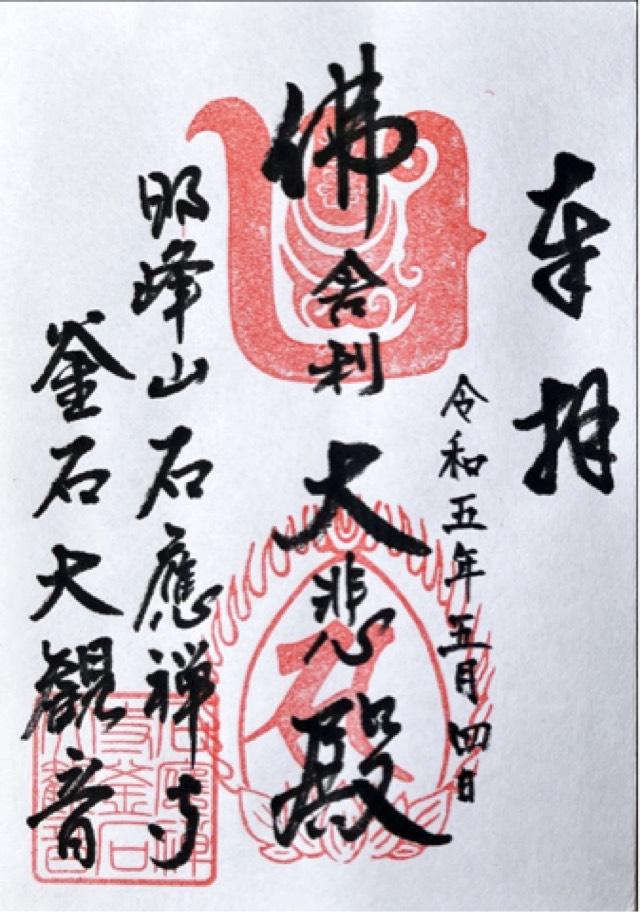 奉拝
令和五年五月四日
佛舎利
大悲殿
明峰山石應禅寺
釜石大観音